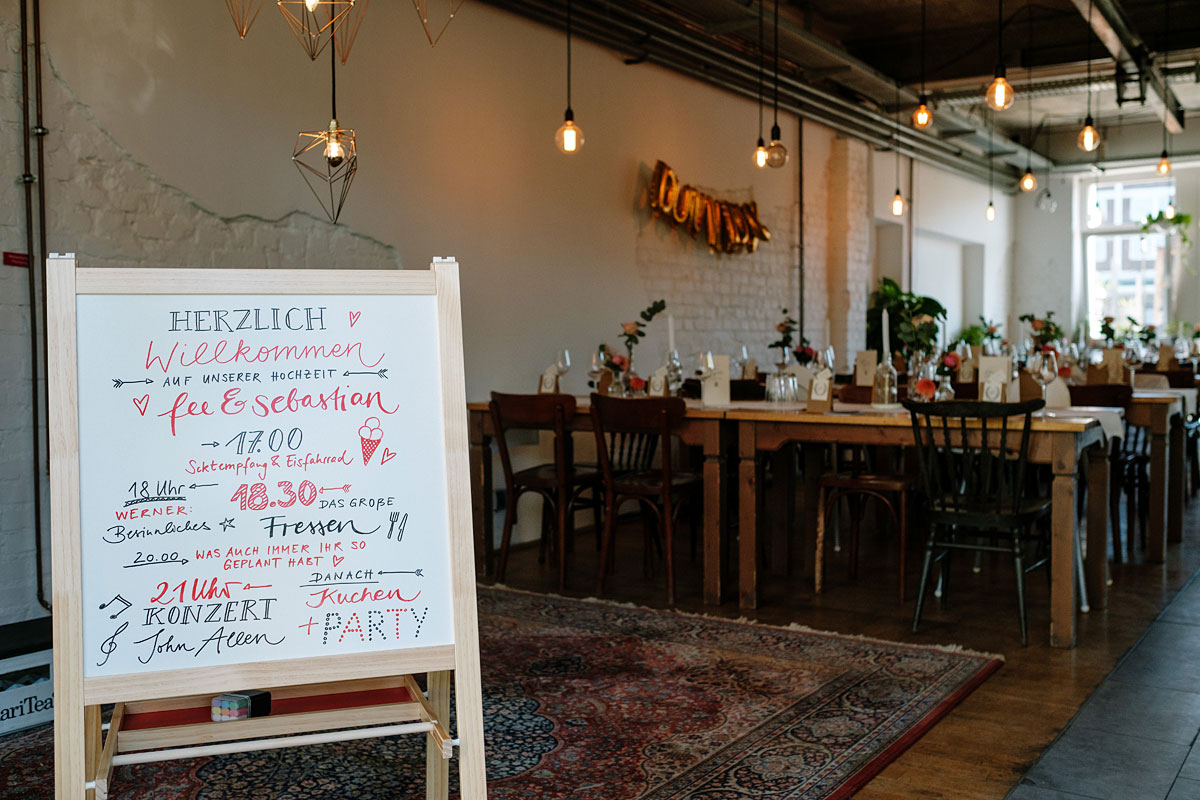 HERZLICH
Willkommen
AUF UNSERER HOCHZEIT
fee & sebastian
17.00
Sektempfang & Eisfahrrad
18 Uhr
WERNER:
Besinnliches
18.30
DAS GROßE
Fressen
20.00 WAS AUCH IMMER IHR SO
GEPLANT HABT
21 Uhr
KONZERT
John Allen
DANACH
Kuchen
+ PARTY
ariTea